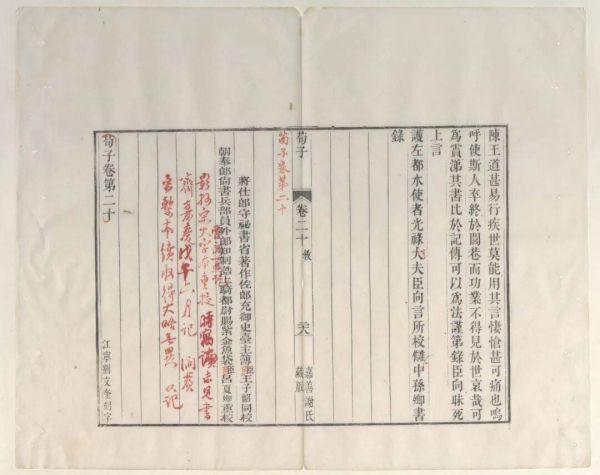 陳王道甚易行疾世莫能用其言悽愴甚可痛也嗚
呼使斯人卒終於閭巷而功業不得見於世哀哉可
為霣涕其書比於記傳可以為法謹第錄臣向昧死
上言
護左都水使者光祿大夫臣向言所校讎中孫卿書
錄
荀子
卷二十
嘉善謝氏
藏版
荀子卷第二十
將仕郎守祕書省著作佐郎充御史臺主簿臣王子韶同校
朝奉郎尚書兵部員外郎知制誥上騎都尉賜紫金魚袋臣呂夏卿重校
宋大字本重校 時寓讀未見書
齋嘉慶戊午六月記 澗薲
荀子卷第二十
江寧劉文奎刻字